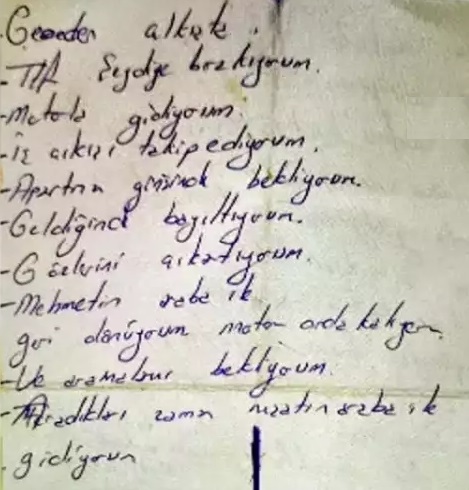 - TIR Şeydiye bırakıyorum.
- Motorla gidiyorum.
- İş çıkışı takip ediyorum.
- Apartman girişinde bekliyorum.
- Geldiğinde bayıltıyorum.
- çıkartıyorum.
- Mehmetin araba ile
geri dönüyorum motor orda kalıyor.
- Ve aramaları bekliyorum.
- Aradıkları zaman araba ile
gidiyorum